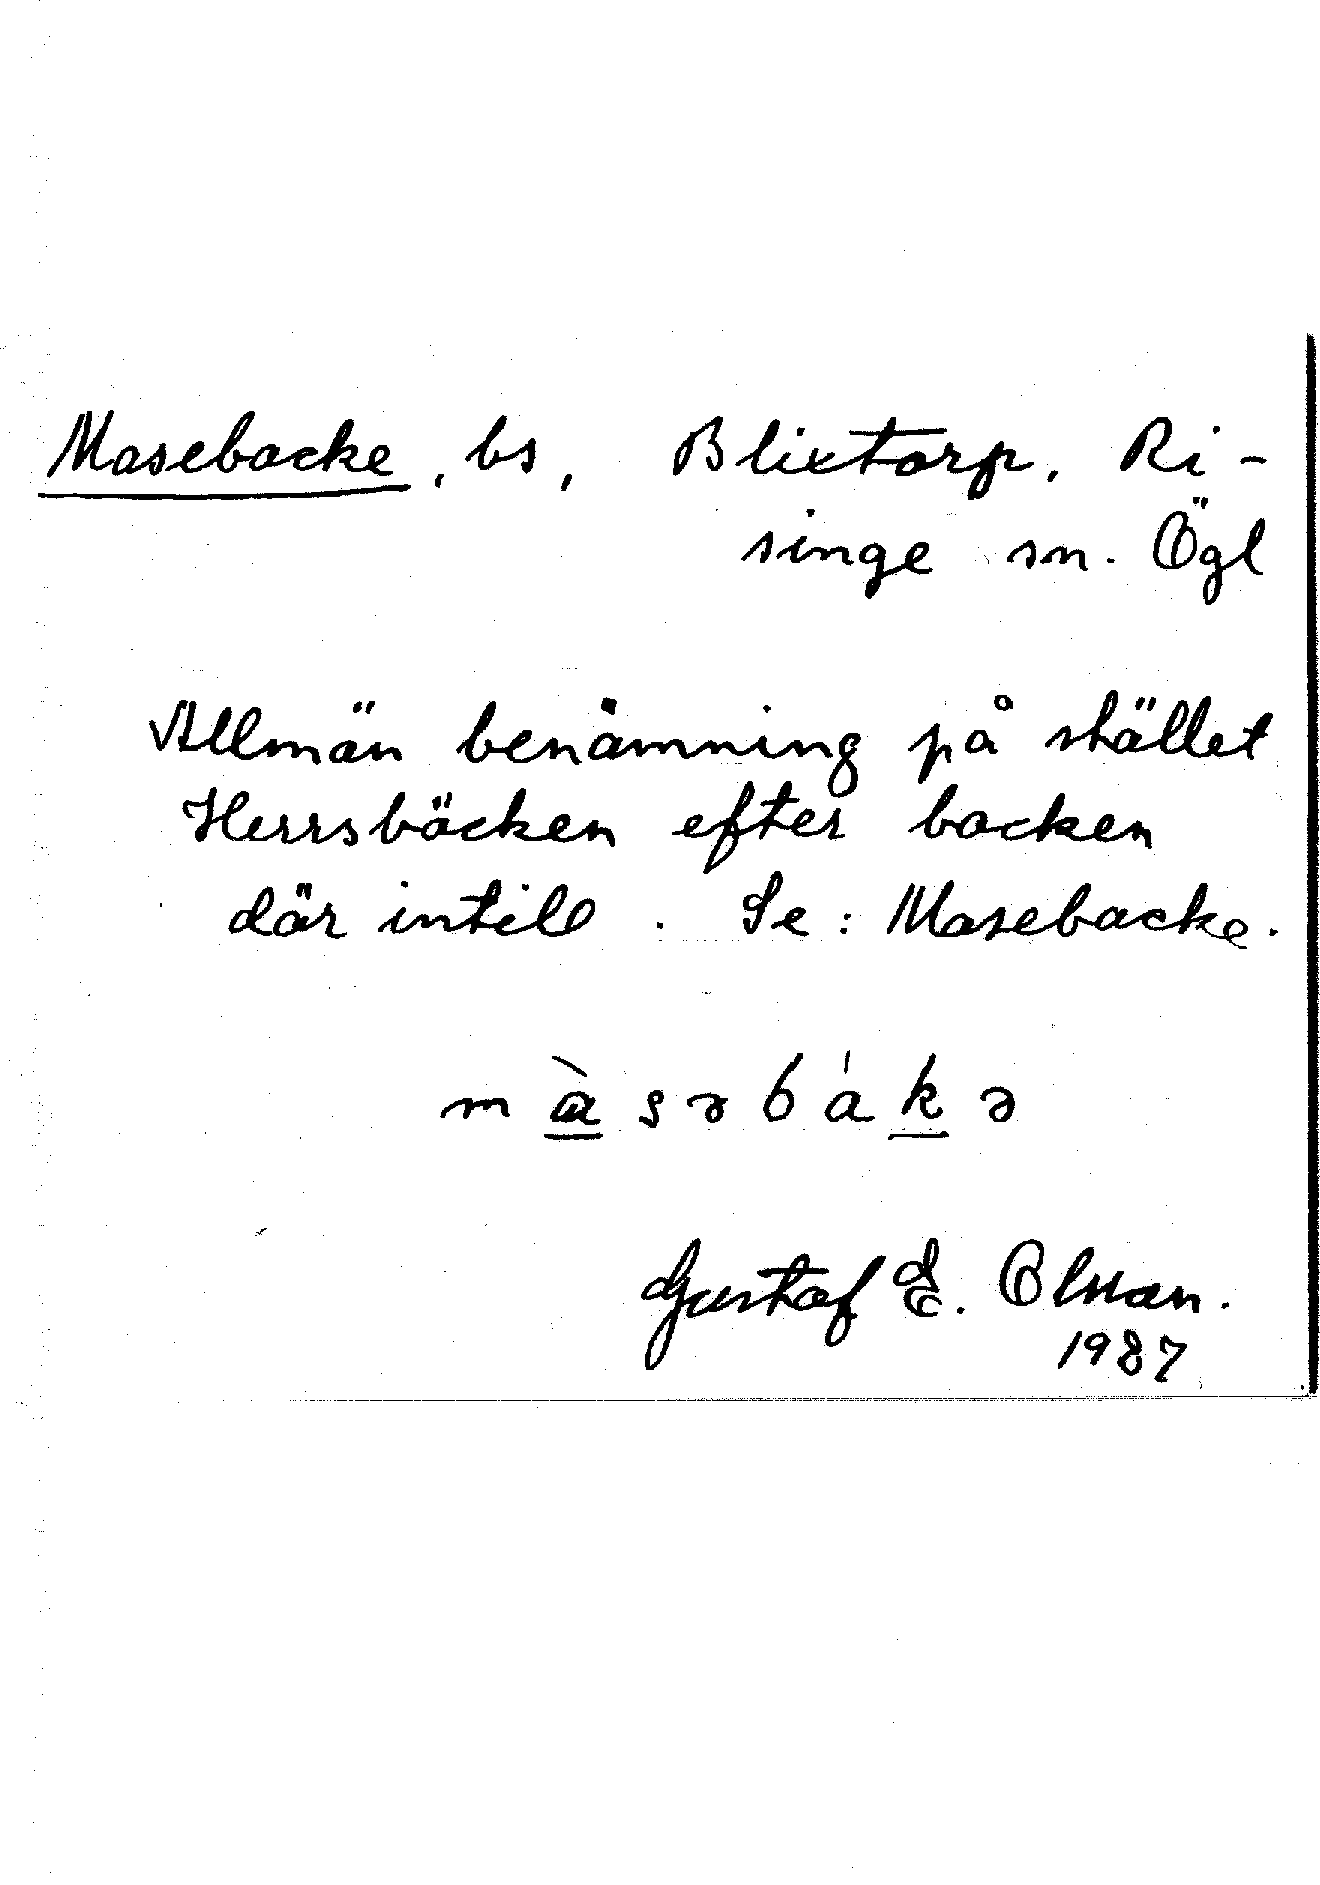 Masebacke, bs, Blixtorp, Ri-
singe sn. Ögl
Allmän benämning på stället
Herrsbäcken efter backen
där intill. Se: Masebacke.
mɑ̀səbákə
Gustaf E. Olsson.
1987